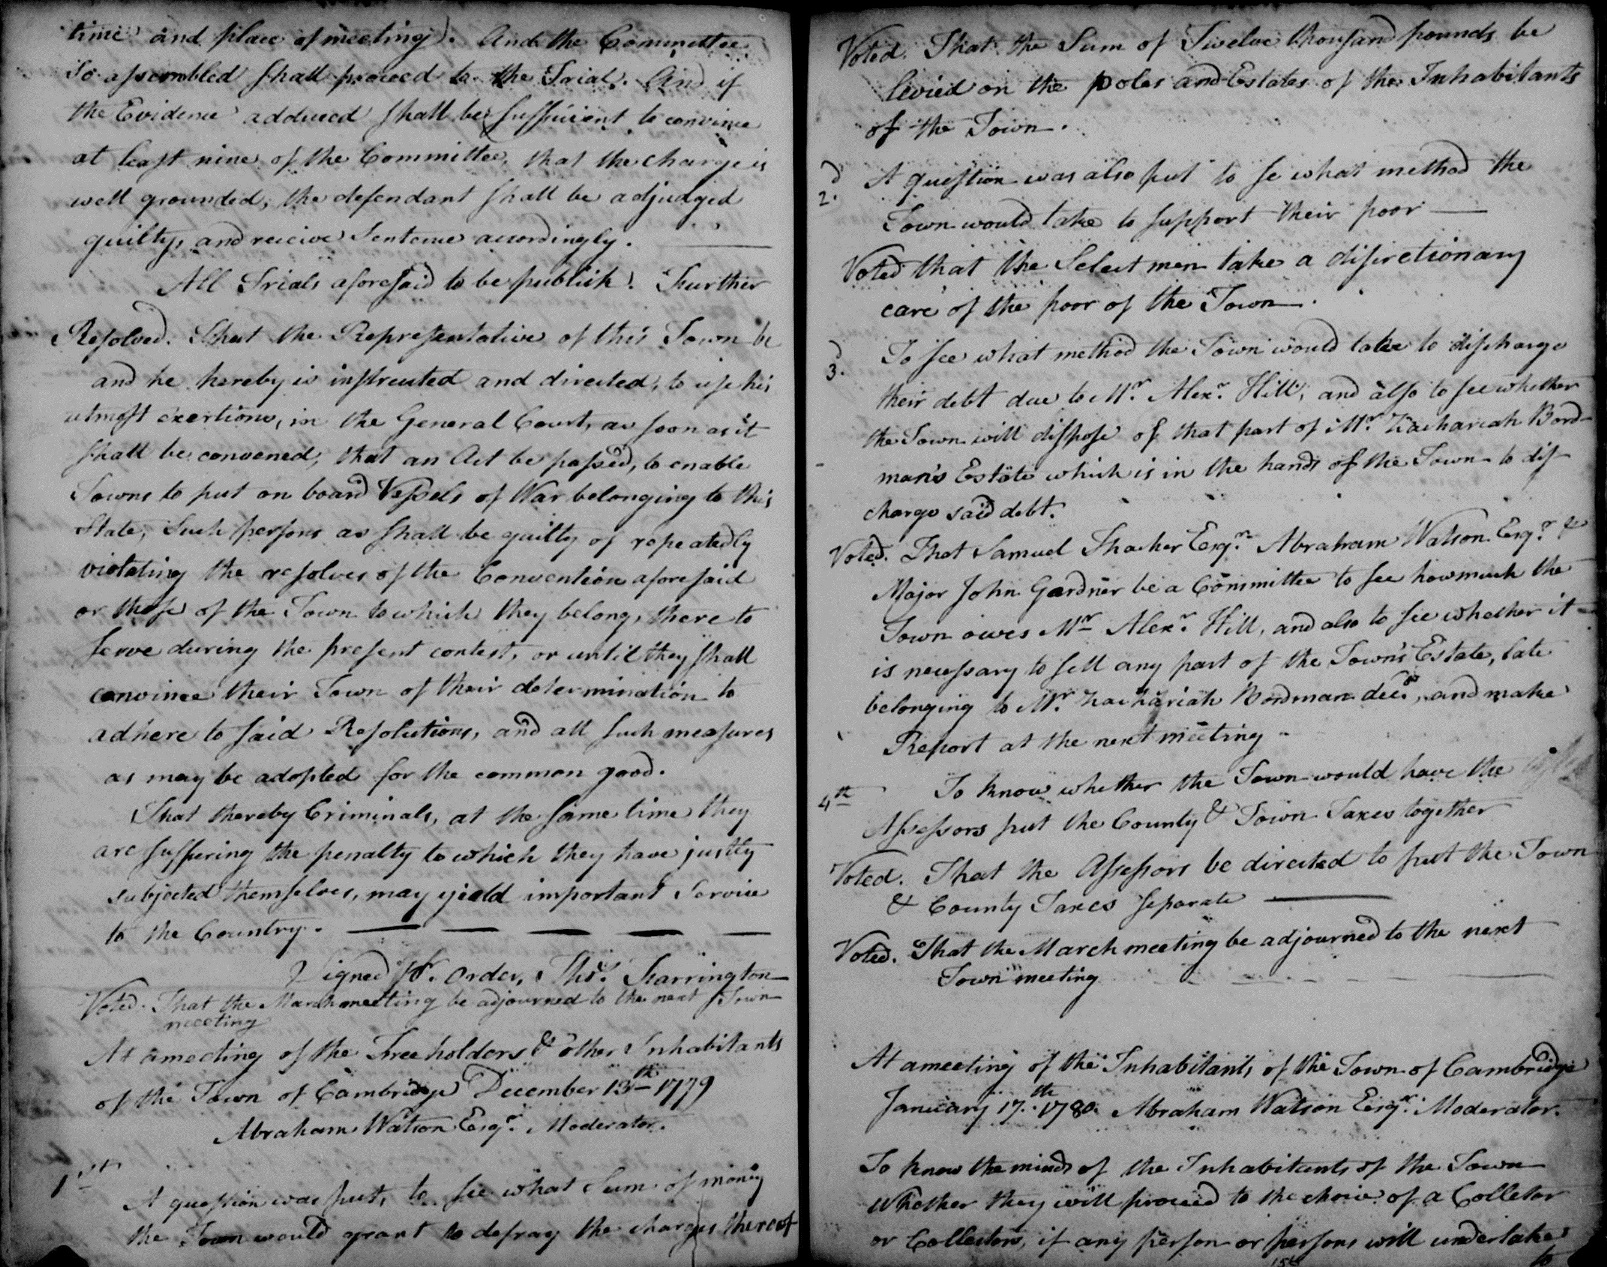 time and place of meeting). And the Committee
so assembled shall proceed to the Trial. And if
the Evidence adduced shall be sufficient to convince
at least nine of the Committee, that the charge is
well grounded, the defendant shall be adjudged
guilty, and receive Sentence accordingly.
All Trials aforesaid to be publick. Further
Resolved. That the Representative of this Town be
and he hereby is instructed and directed, to use his
utmost exertions, in the General Court, as soon as it
shall be convened, that an Act be passed, to enable
Towns to put on board Vessels of War belonging to this
State, Such persons as shall be guilty of repeatedly
violating the resolves of the Convention aforesaid
or those of the Town to which they belong, there to
serve during the present contest, or until they shall
convince their Town of their determination to
adhere to said Resolutions, and all such measures
as may be adopted for the common good.
That thereby Criminals, at the same time they
are suffering the penalty to which they have justly
subjected themselves, may yield important Service
to the Country.
Signed pr. Order, Thos. Farrington
Voted. That the March meeting be adjourned to the next Town
meeting
At a meeting of the Freeholders & other Inhabitants
of the Town of Cambridge December 13th 1779
Abraham Watson Esqr. Moderator.
1st
A question was put, to see what Sum of money
the Town would grant to defray the charges thereof
Voted. That the Sum of Twelve thousand pounds be
levied on the poles and Estates of the Inhabitants
of the Town.
2d. A question was also put to se what method the
Town would take to support their poor
Voted that the Select men take a discretionary
care of the poor of the Town.
3d. To see what method the Town would take to discharge
their debt due to Mr. Alexr. Hill, and also to see whether
the Town will dispose of that part of Mr. Zachariah Bord-
man's Estate which is in the hands of the Town to dis
charge said debt.
Voted. That Samuel Thacher Esqr. Abraham Watson Esqr. &
Major John Gardner be a Committee to see how much the
Town owes Mr. Alexr. Hill, and also to see whether it
is necessary to sell any part of the Town's Estate, late
belonging to Mr. Zachariah Bordman decd, and make
Report at the next meeting
4th To know whether the Town would have the
Assessors put the County & Town Taxes together
Voted. That the Assessors be directed to put the Town
& County Taxes separate
Voted. That the March meeting be adjourned to the next
Town meeting
At a meeting of the Inhabitants of the Town of Cambridge
January 17th. 1780. Abraham Watson Esqr. Moderator.
To know the minds of the Inhabitants of the Town
Whether they will proceed to the choice of a Colletor
or Collectors, if any person or persons will undertake
to